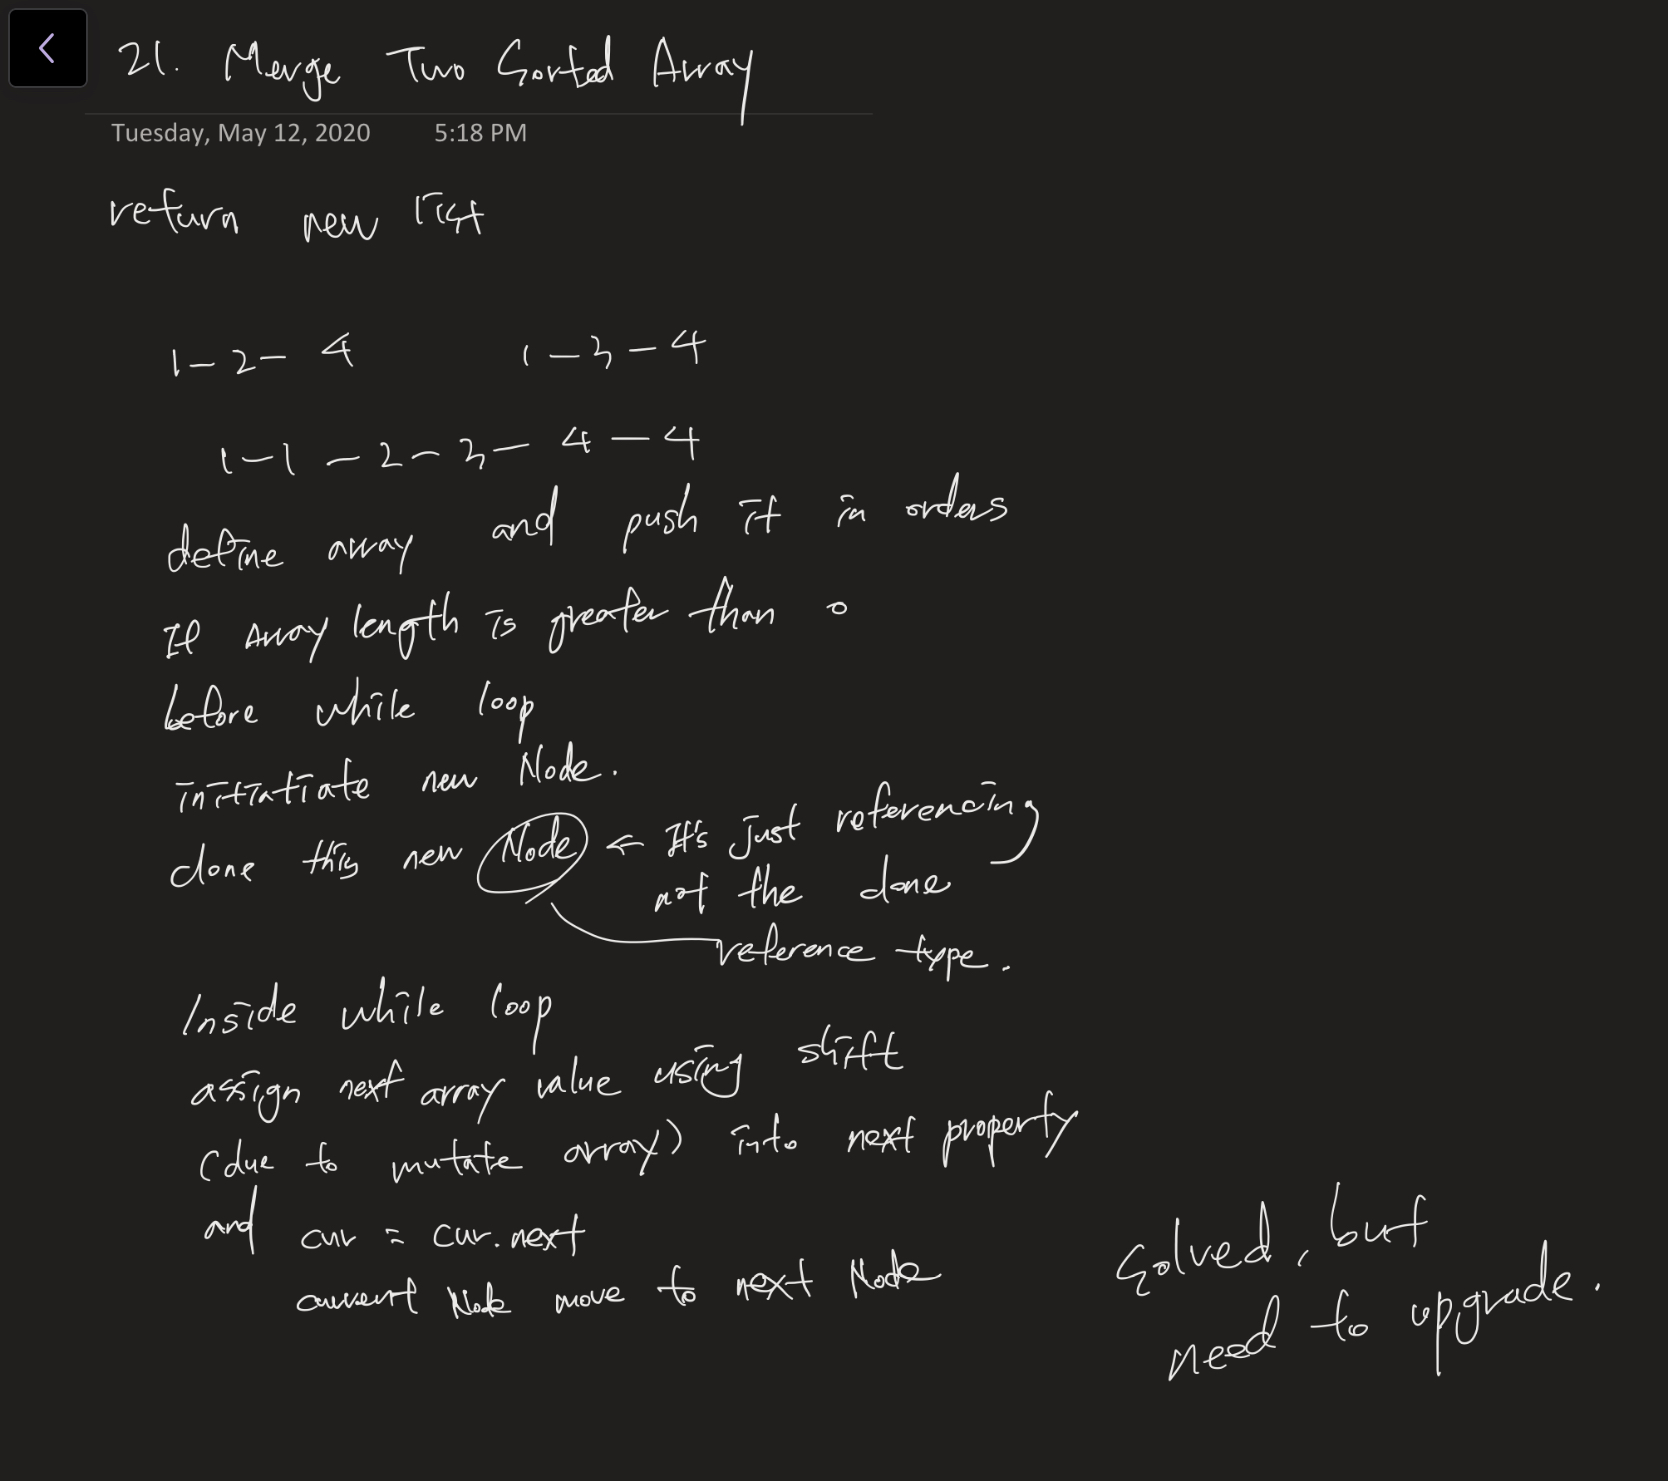 21. Merge Two Sorted Array
Tuesday, May 12, 2020 5:18 PM
return new list
1-2-4 1-3-4
1-1-2-3-4-4
define array and push it in orders
If Array length is greater than 0
before while loop
initiatiate new Node.
clone this new Node ← It's just referencing
not the clone
reference type.
Inside while loop
assign next array value using shift
(due to mutate array) into next property
and cur = cur.next
current Node move to next Node
Solved, but
need to upgrade.